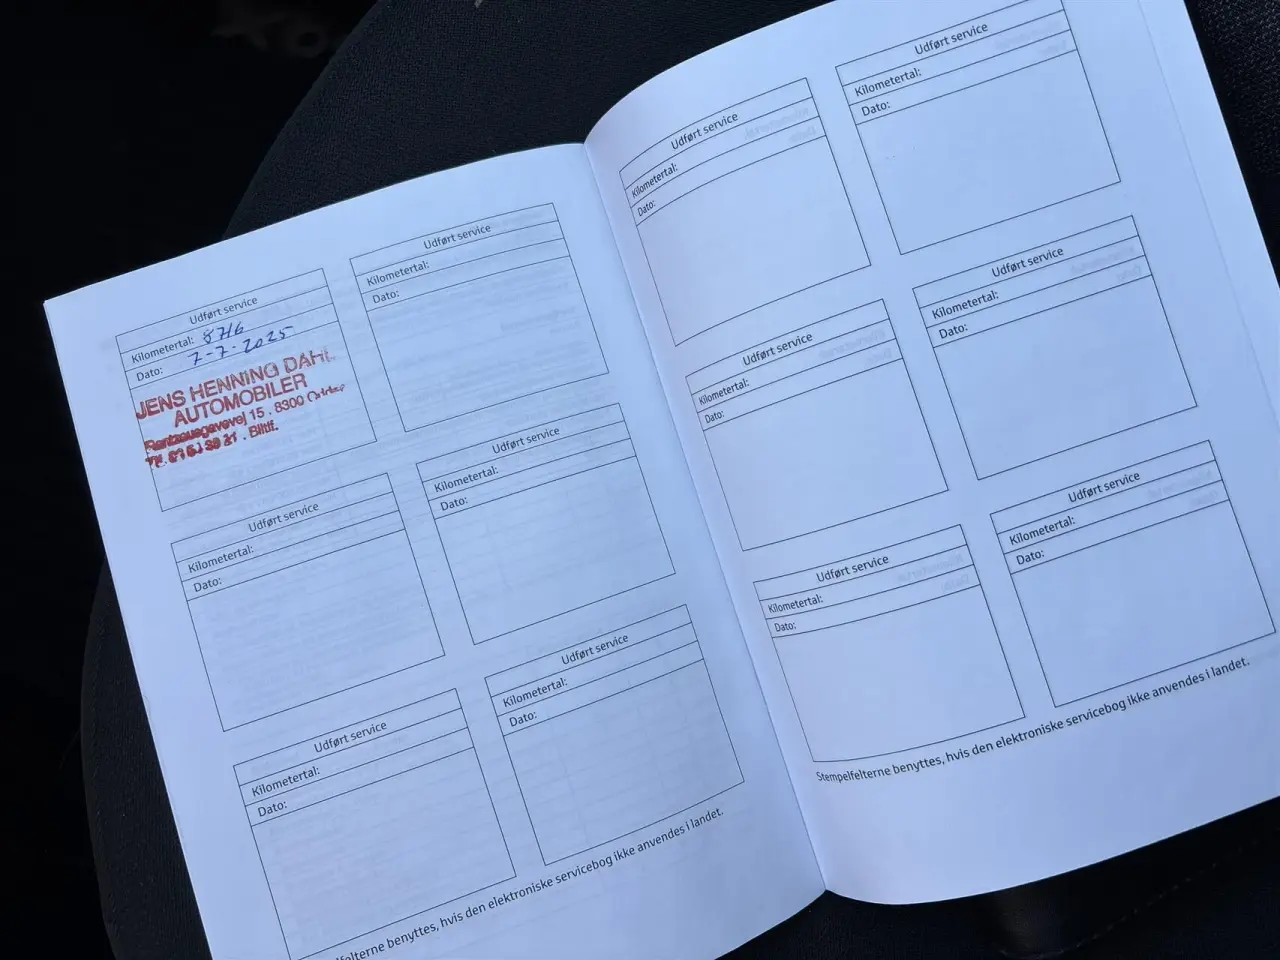 Udført service
Kilometertal: 8716
Dato: 7-7-2025
JENS HENNING DAHL
AUTOMOBILER
15 . 8300
Udført service
Kilometertal:
Dato:
Udført service
Kilometertal:
Dato:
Udført service
Kilometertal:
Dato:
Udført service
Kilometertal:
Dato:
Udført service
Kilometertal:
Dato:
elfelterne benyttes, hvis den elektroniske servicebog ikke anvendes i landet.
Udført service
Kilometertal:
Dato:
Udført service
Kilometertal:
Dato:
Udført service
Kilometertal:
Dato:
Udført service
Kilometertal:
Dato:
Udført service
Kilometertal:
Dato:
Udført service
Kilometertal:
Dato:
Stempelfelterne benyttes, hvis den elektroniske servicebog ikke anvendes i landet.